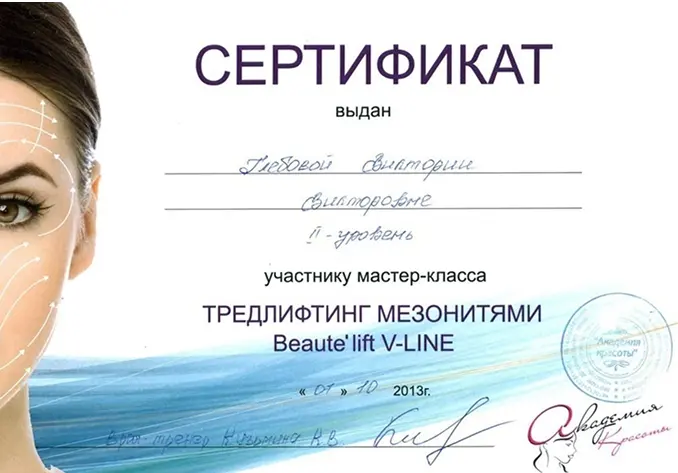 СЕРТИФИКАТ
выдан
Глебовой Виктории
Викторовне
II-уровень
участнику мастер-класса
ТРЕДЛИФТИНГ МЕЗОНИТЯМИ
Beaute'lift V-LINE
« 01 » 10 2013г.
Врач тренер
"Академия
красоты"
Академия
Красоты